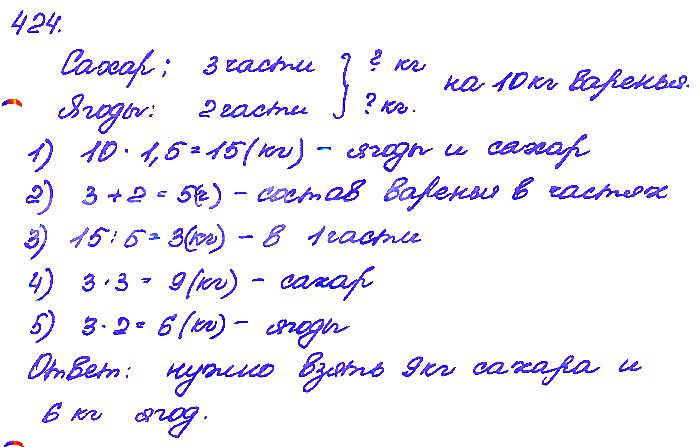 424.
Сахар: 3 части } ? кг на 10 кг варенья.
Ягоды: 2 части } ? кг.
1) 10 · 1,5 = 15 (кг) – ягоды и сахар
2) 3 + 2 = 5(ч) – состав варенья в частях
3) 15 : 5 = 3(кг) – в 1 части
4) 3 · 3 = 9 (кг) – сахар
5) 3 · 2 = 6 (кг) – ягоды
Ответ: нужно взять 9 кг сахара и
6 кг ягод.